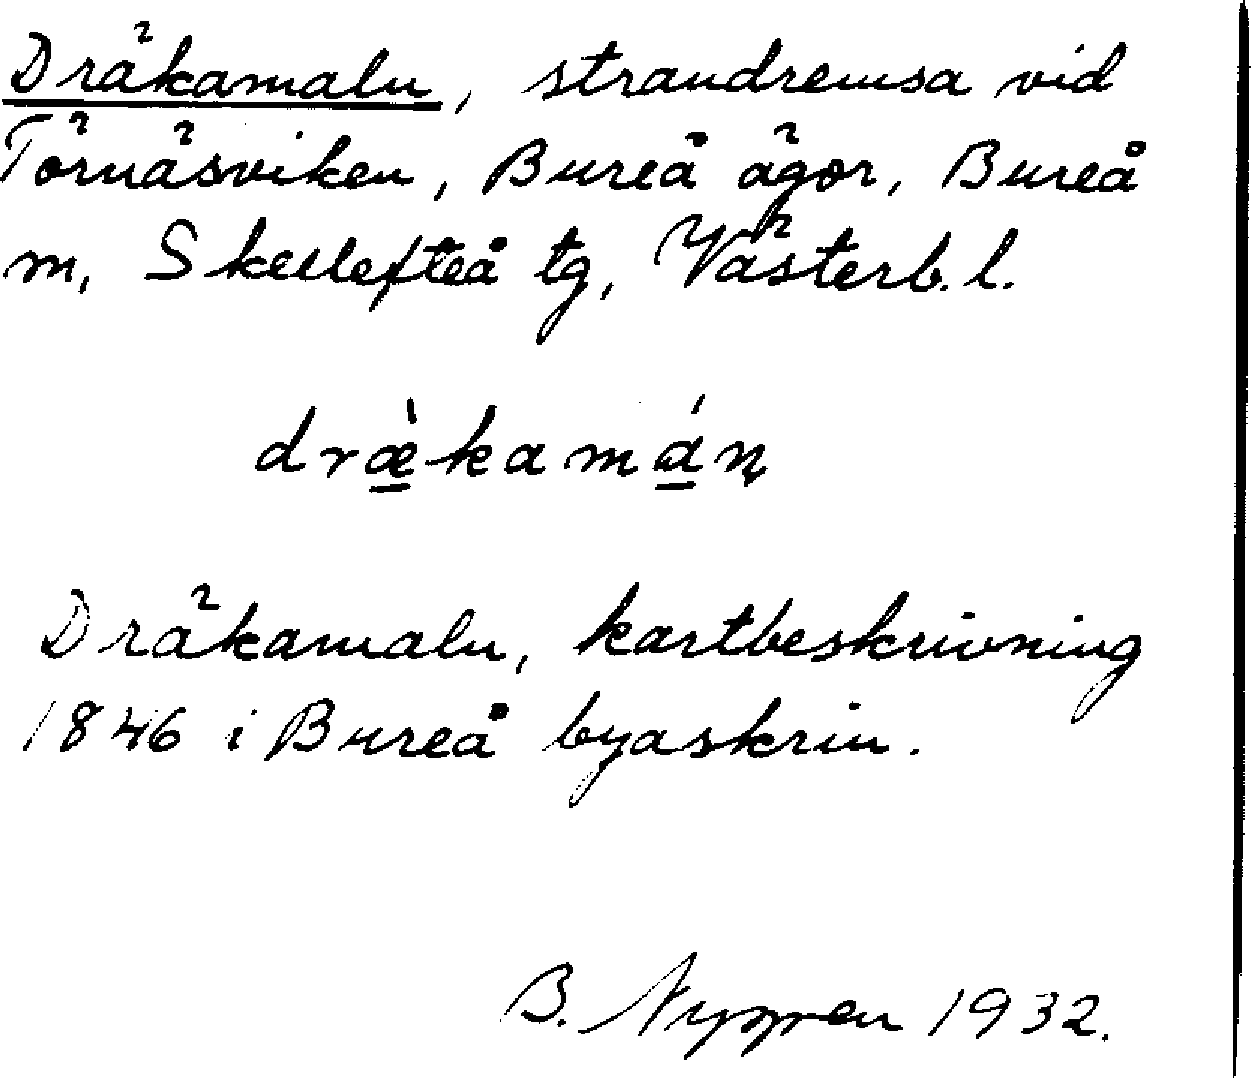 Dräkamaln, strandremsa vid
Törnäsviken, Bureå ägor, Bureå
m, Skellefteå tg, Västerb. l.
dræ̀kamáņ
Dräkamaln, kartbeskrivning
1846 i Bureå byaskrin.
B. 1932.